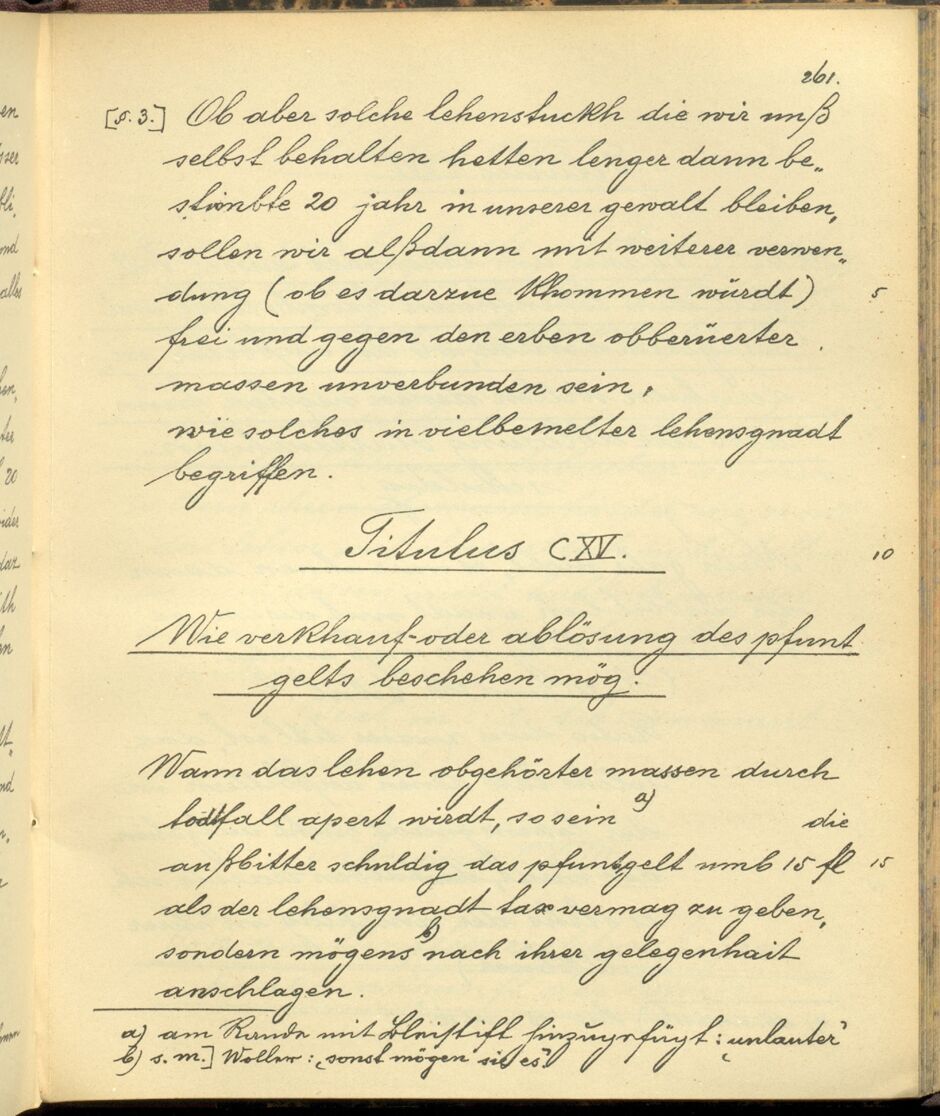 261.
[§. 3.] Ob aber solche lehenstuckh die wir unß
selbst behalten hetten lenger dann be„
stimbte 20 jahr in unserer gewalt bleiben,
sollen wir alßdann mit weiterer verwen„
dung (ob es darzue khommen würdt) 5
frei und gegen den erben obberüerter
massen unverbunden sein,
wie solches in vielbemelter lehensgnadt
begriffen.
Titulus CXV. 10
Wie verkhauf- oder ablösung des pfunt
gelts beschehen mög.
Wann das lehen obgehörter massen durch
todtfall apert wirdt, so sein a) die
außbitter schuldig das pfuntgelt umb 15 fl 15
als der lehensgnadt tax vermag zu geben,
sondern mögens b) nach ihrer gelegenhait
anschlagen.
a) am Rande mit Bleistift hinzugefügt: „unlauter"
b) s. m.] Wollew: „sonst mögen sie es"